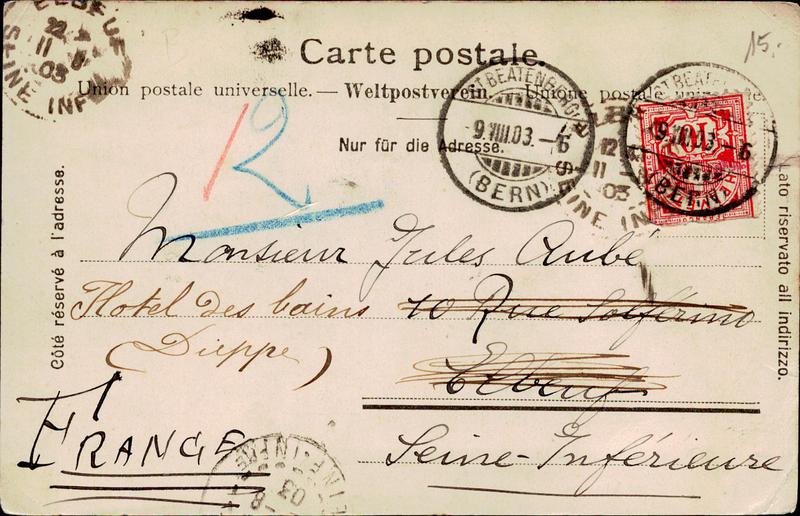 ELBEUF
22
11
03
SEINE INF
15.-
Carte postale.
Union postale universelle. — Weltpostverein. — Unione postale universale.
Nur für die Adresse.
ST BEATENBERG
9.VIII.03.-6
(BERN)
12
11
03
SEINE IN
9.VIII.03.-6
12
Côté réservé à l'adresse.
Lato riservato all indirizzo.
Monsieur Jules Aubé
Hotel des bains 10 Rue Solférino
(Dieppe) Elbeuf
FRANCE
Seine-Inférieure
03